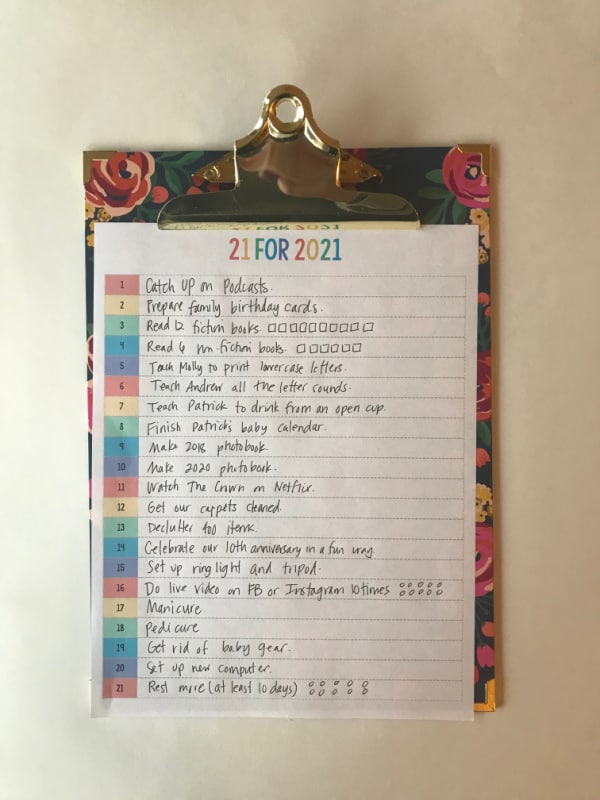 21 FOR 2021
1 Catch up on Podcasts.
2 Prepare family birthday cards.
3 Read 12 fiction books. □□□□□□□□□□
4 Read 6 non-fiction books. □□□□□□
5 Teach Molly to print lowercase letters.
6 Teach Andrew all the letter sounds.
7 Teach Patrick to drink from an open cup.
8 Finish Patrick's baby calendar.
9 Make 2018 photobook.
10 Make 2020 photobook.
11 Watch The Crown on Netflix.
12 Get our carpets cleaned.
13 Declutter 400 items.
14 Celebrate our 10th anniversary in a fun way.
15 Set up ring light and tripod.
16 Do live video on FB or Instagram 10 times ○○○○○○○○○○
17 Manicure
18 Pedicure
19 Get rid of baby gear.
20 Set up new computer.
21 Rest more (at least 10 days) ○○○○○○○○○○